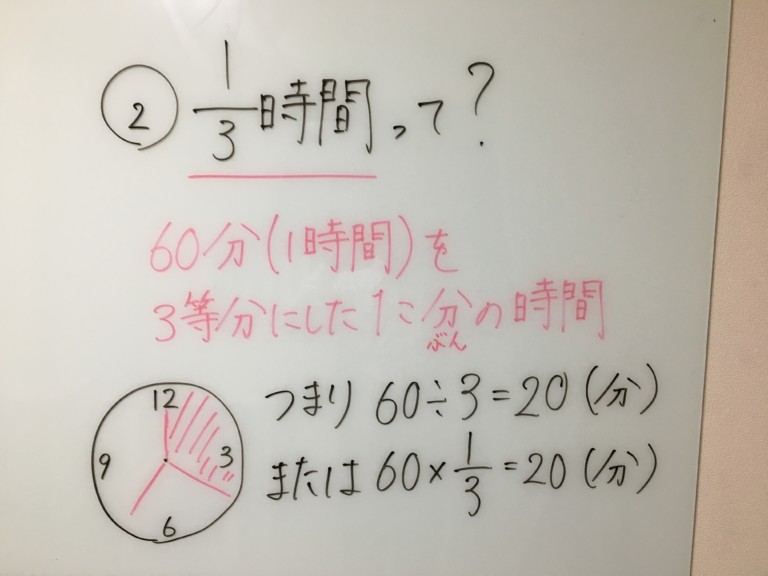 ② 1/3時間って？
60分(1時間)を
3等分にした1こ分の時間
ぶん
つまり 60÷3=20(分)
または 60×1/3=20(分)
12
9
3
6